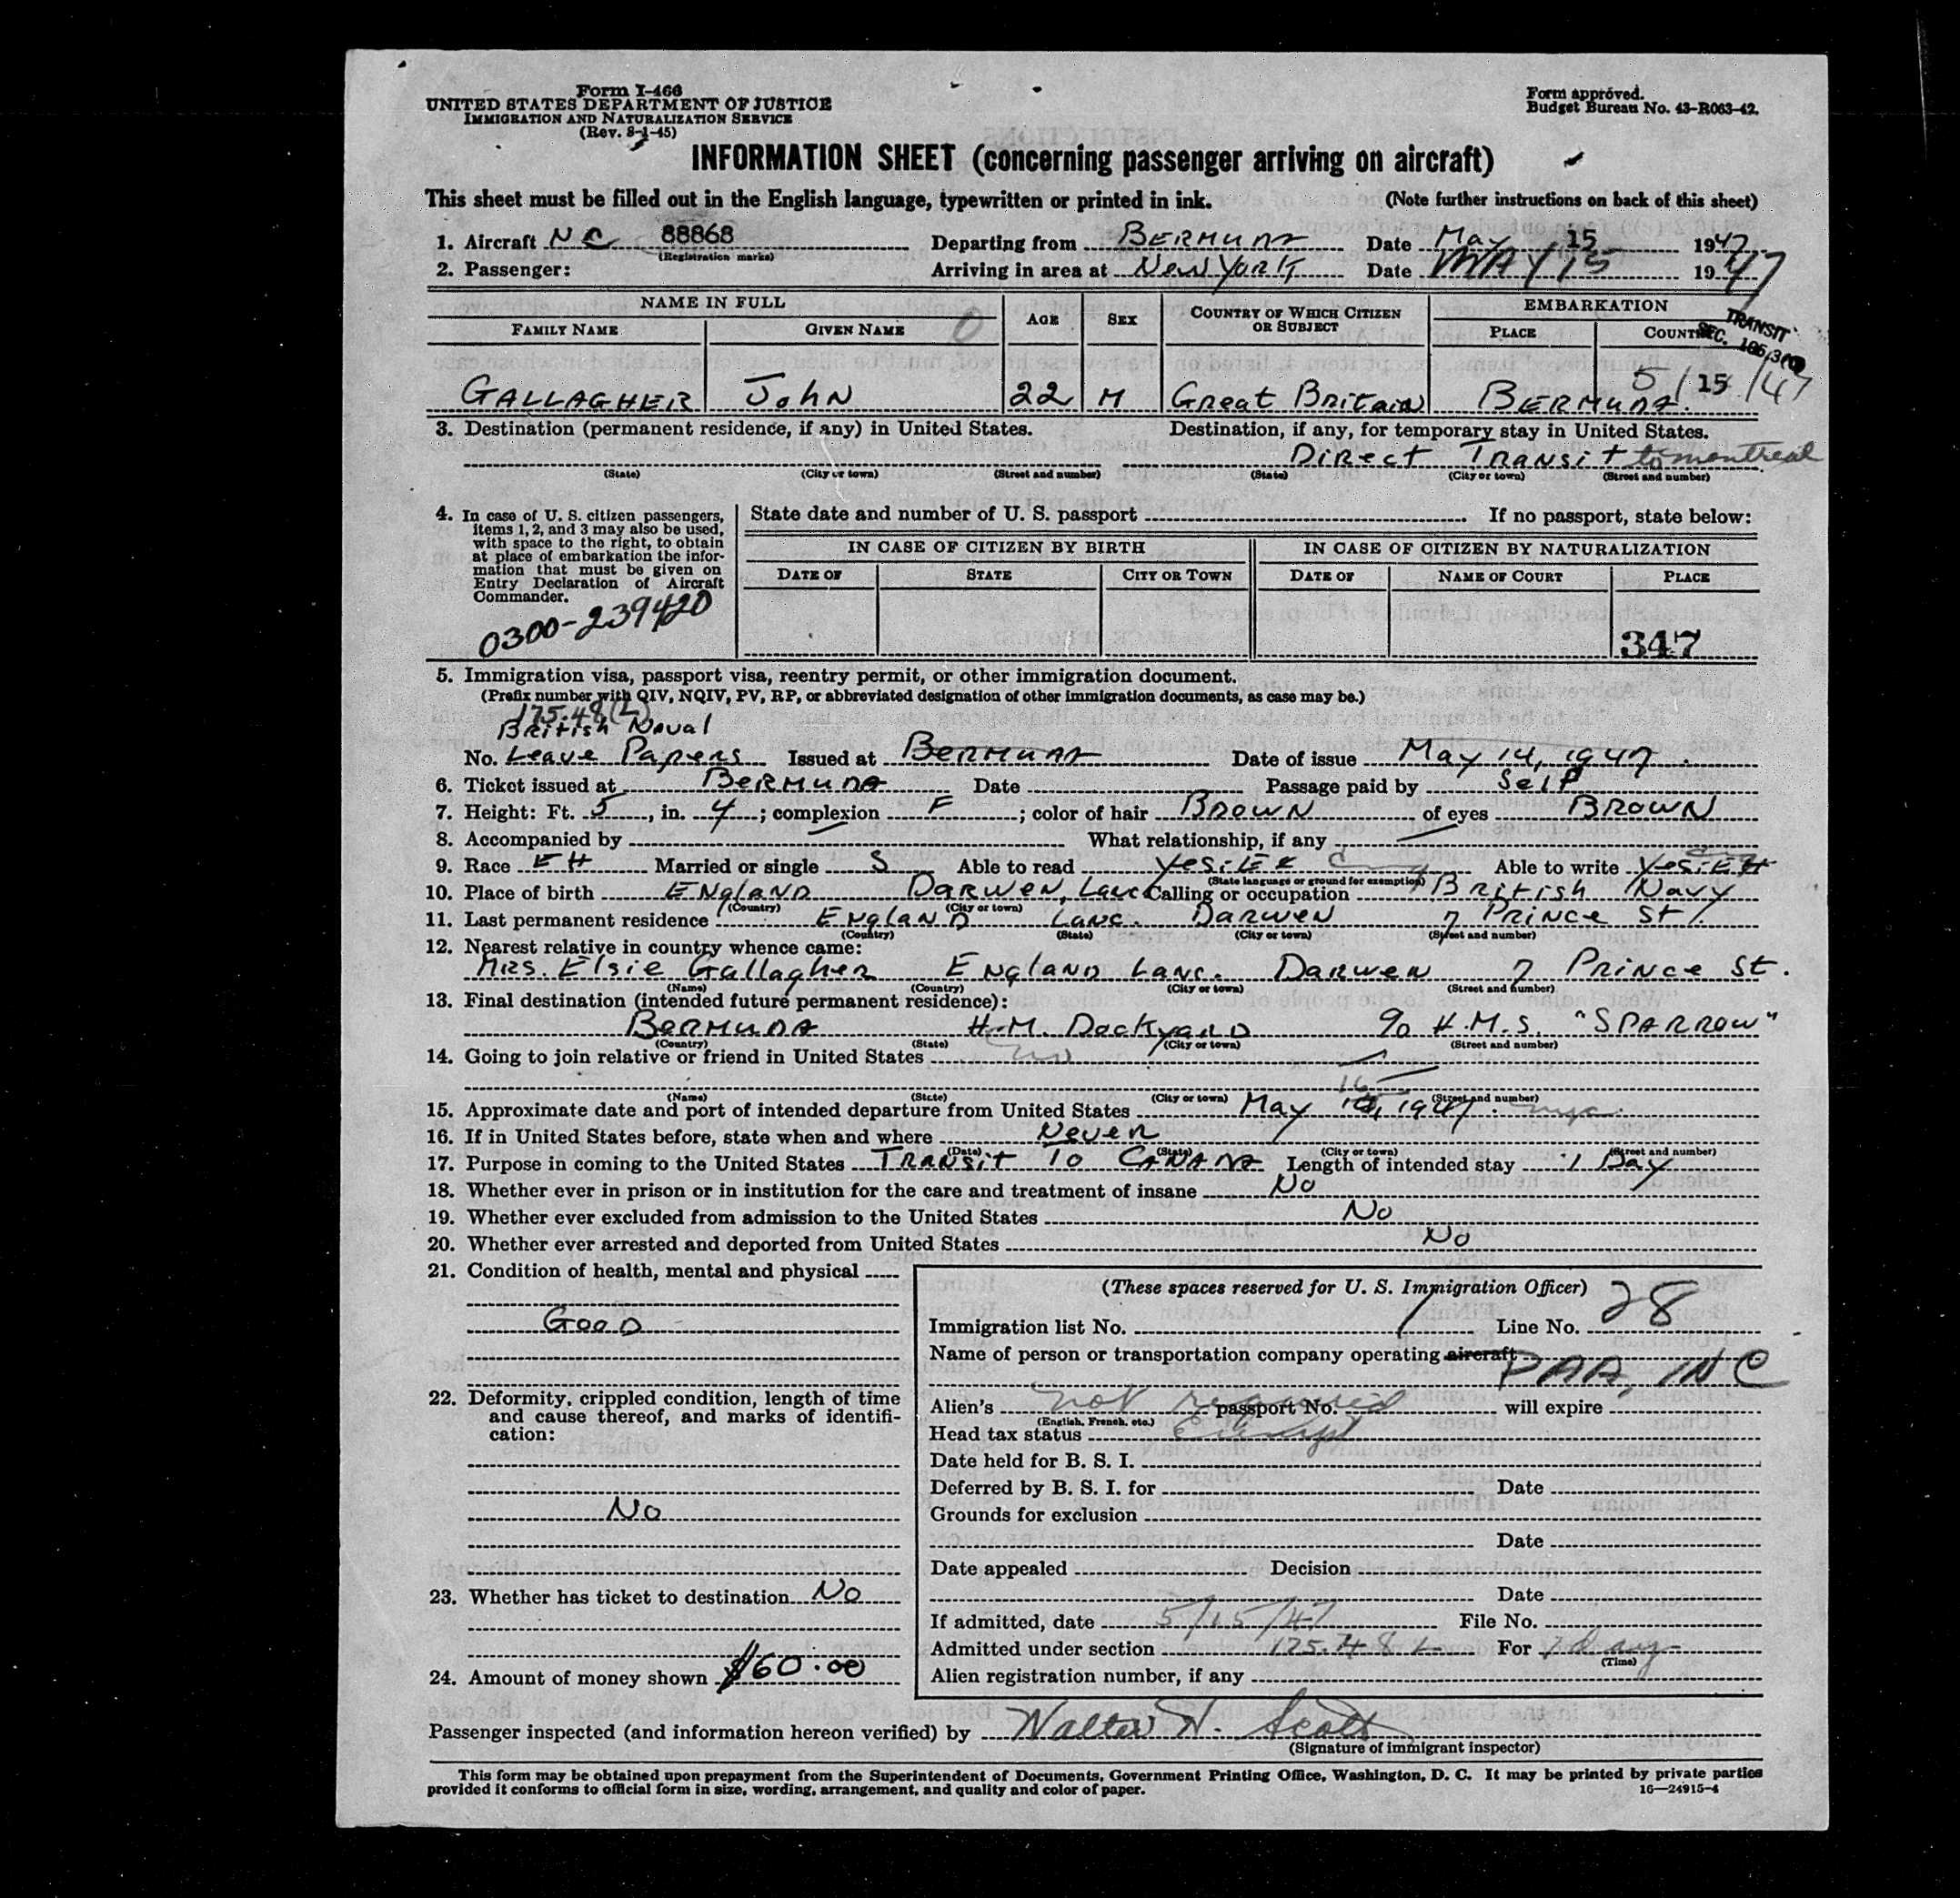 Form I-466
UNITED STATES DEPARTMENT OF JUSTICE
IMMIGRATION AND NATURALIZATION SERVICE
(Rev. 8-1-45)
Form approved.
Budget Bureau No. 43-R063-42.
INFORMATION SHEET (concerning passenger arriving on aircraft)
This sheet must be filled out in the English language, typewritten or printed in ink. (Note further instructions on back of this sheet)
1. Aircraft NC 88868 Departing from BERMUDA Date May 15 1947
(Registration marks)
2. Passenger: Arriving in area at New York Date MAY 15 1947
NAME IN FULL AGE SEX COUNTRY OF WHICH CITIZEN OR SUBJECT EMBARKATION
FAMILY NAME GIVEN NAME PLACE COUNTRY
TRANSIT
GALLAGHER John 22 M Great Britain BERMUDA. 5/15/47
3. Destination (permanent residence, if any) in United States. Destination, if any, for temporary stay in United States.
Direct Transit to montreal
(State) (City or town) (Street and number) (State) (City or town) (Street and number)
4. In case of U. S. citizen passengers, items 1, 2, and 3 may also be used, with space to the right, to obtain at place of embarkation the information that must be given on Entry Declaration of Aircraft Commander.
0300-239420
State date and number of U. S. passport If no passport, state below:
IN CASE OF CITIZEN BY BIRTH IN CASE OF CITIZEN BY NATURALIZATION
DATE OF STATE CITY OR TOWN DATE OF NAME OF COURT PLACE
347
5. Immigration visa, passport visa, reentry permit, or other immigration document.
(Prefix number with QIV, NQIV, PV, RP, or abbreviated designation of other immigration documents, as case may be.)
175.48(L)
British Naval
No. Leave Papers Issued at BERMUDA Date of issue May 14, 1947.
6. Ticket issued at BERMUDA Date Passage paid by Self
7. Height: Ft. 5, in. 4; complexion F; color of hair BROWN of eyes BROWN
8. Accompanied by What relationship, if any
9. Race EH Married or single S Able to read Yes: Able to write Yes:
(State language or ground for exemption)
10. Place of birth ENGLAND DARWEN, Lanc Calling or occupation British Navy
(Country) (City or town)
11. Last permanent residence ENGLAND Lanc. DARWEN 7 PRINCE St.
(Country) (State) (City or town) (Street and number)
12. Nearest relative in country whence came:
Mrs. Elsie Gallagher ENGLAND Lanc. DARWEN 7 PRINCE St.
(Name) (Country) (City or town) (Street and number)
13. Final destination (intended future permanent residence):
BERMUDA H.M. DockyarD c/o H.M.S. "SPARROW"
(Country) (State) (City or town) (Street and number)
14. Going to join relative or friend in United States no
(Name) (State) (City or town) (Street and number)
16
15. Approximate date and port of intended departure from United States May 1947. nyc.
16. If in United States before, state when and where Never
(Date) (State) (City or town) (Street and number)
17. Purpose in coming to the United States TRANSIT TO CANADA Length of intended stay 1 Day
18. Whether ever in prison or in institution for the care and treatment of insane No
19. Whether ever excluded from admission to the United States No
20. Whether ever arrested and deported from United States No
21. Condition of health, mental and physical
GOOD
22. Deformity, crippled condition, length of time and cause thereof, and marks of identification:
No
23. Whether has ticket to destination No
24. Amount of money shown $60.00
(These spaces reserved for U. S. Immigration Officer)
Immigration list No. 1 Line No. 28
Name of person or transportation company operating aircraft
PAA, INC
Alien's not required passport No. will expire
(English, French, etc.)
Head tax status Exempt
Date held for B. S. I.
Deferred by B. S. I. for Date
Grounds for exclusion
Date
Date appealed Decision
Date
If admitted, date 5/15/47 File No.
Admitted under section 175.48 L For 1 day
(Time)
Alien registration number, if any
Passenger inspected (and information hereon verified) by Walter H. Scott
(Signature of immigrant inspector)
This form may be obtained upon prepayment from the Superintendent of Documents, Government Printing Office, Washington, D. C. It may be printed by private parties
provided it conforms to official form in size, wording, arrangement, and quality and color of paper. 16—24915-4